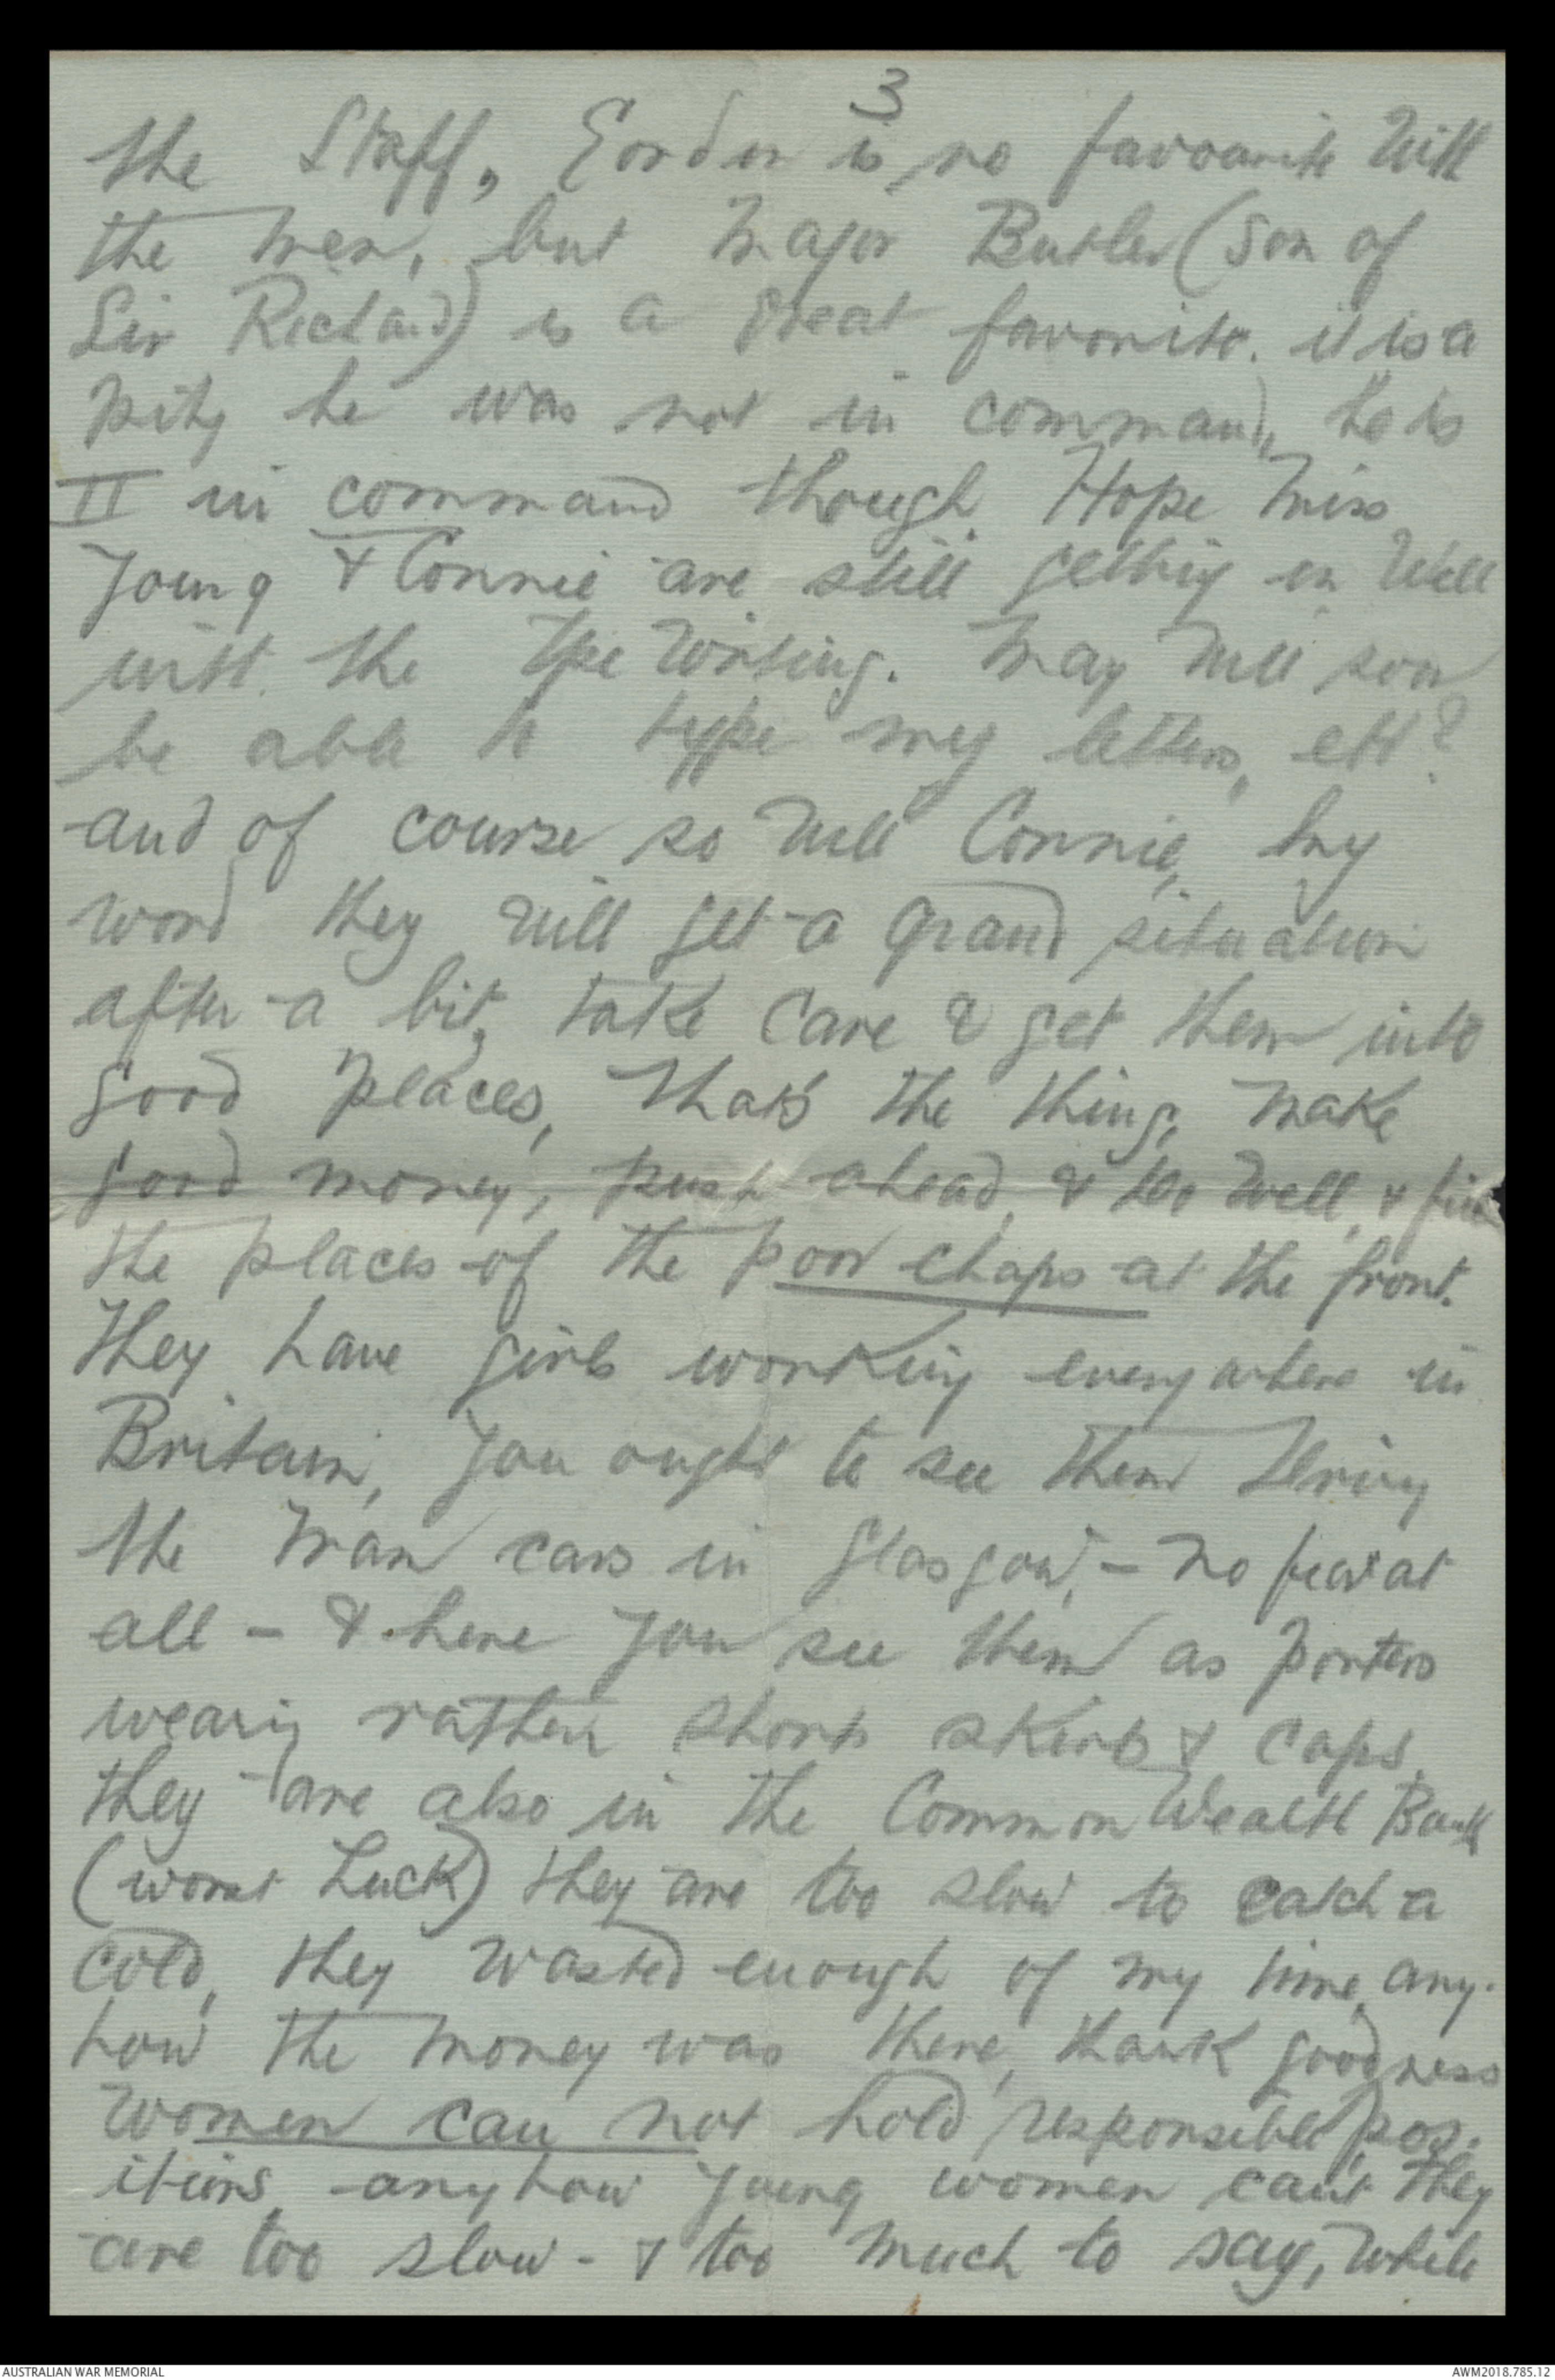 3
the Staff, Gordon is no favourite with
the men, but Major Butler (son of
Sir Richard) is a great favorite. it is a
pity he was not in command, he is
II in command though Hope Miss
Young & Connie are still getting on well
with the Type Writing. May will soon
be able to type my letters, ett?
and of course so will Connie, My
word they will get a grand situation
after a bit, take care & get them into
good places, that's the thing, make
good money, push ahead, & do well, & fill
the places of the poor chaps at the front.
They have girls working everywhere in
Britain, you ought to see them driving
the tram cars in Glasgow, - no fear at
all - & here you see them as porters
wearing rather short skirts & caps.
they are also in the Common Wealth Bank
(worst Luck) they are too slow to catch a
cold, they wasted enough of my time, any-
how the money was there, thank goodness
women can not hold responsible pos-
itions, anyhow young women can't they
are too slow - & too much to say, while
AUSTRALIAN WAR MEMORIAL
AWM2018.785.12